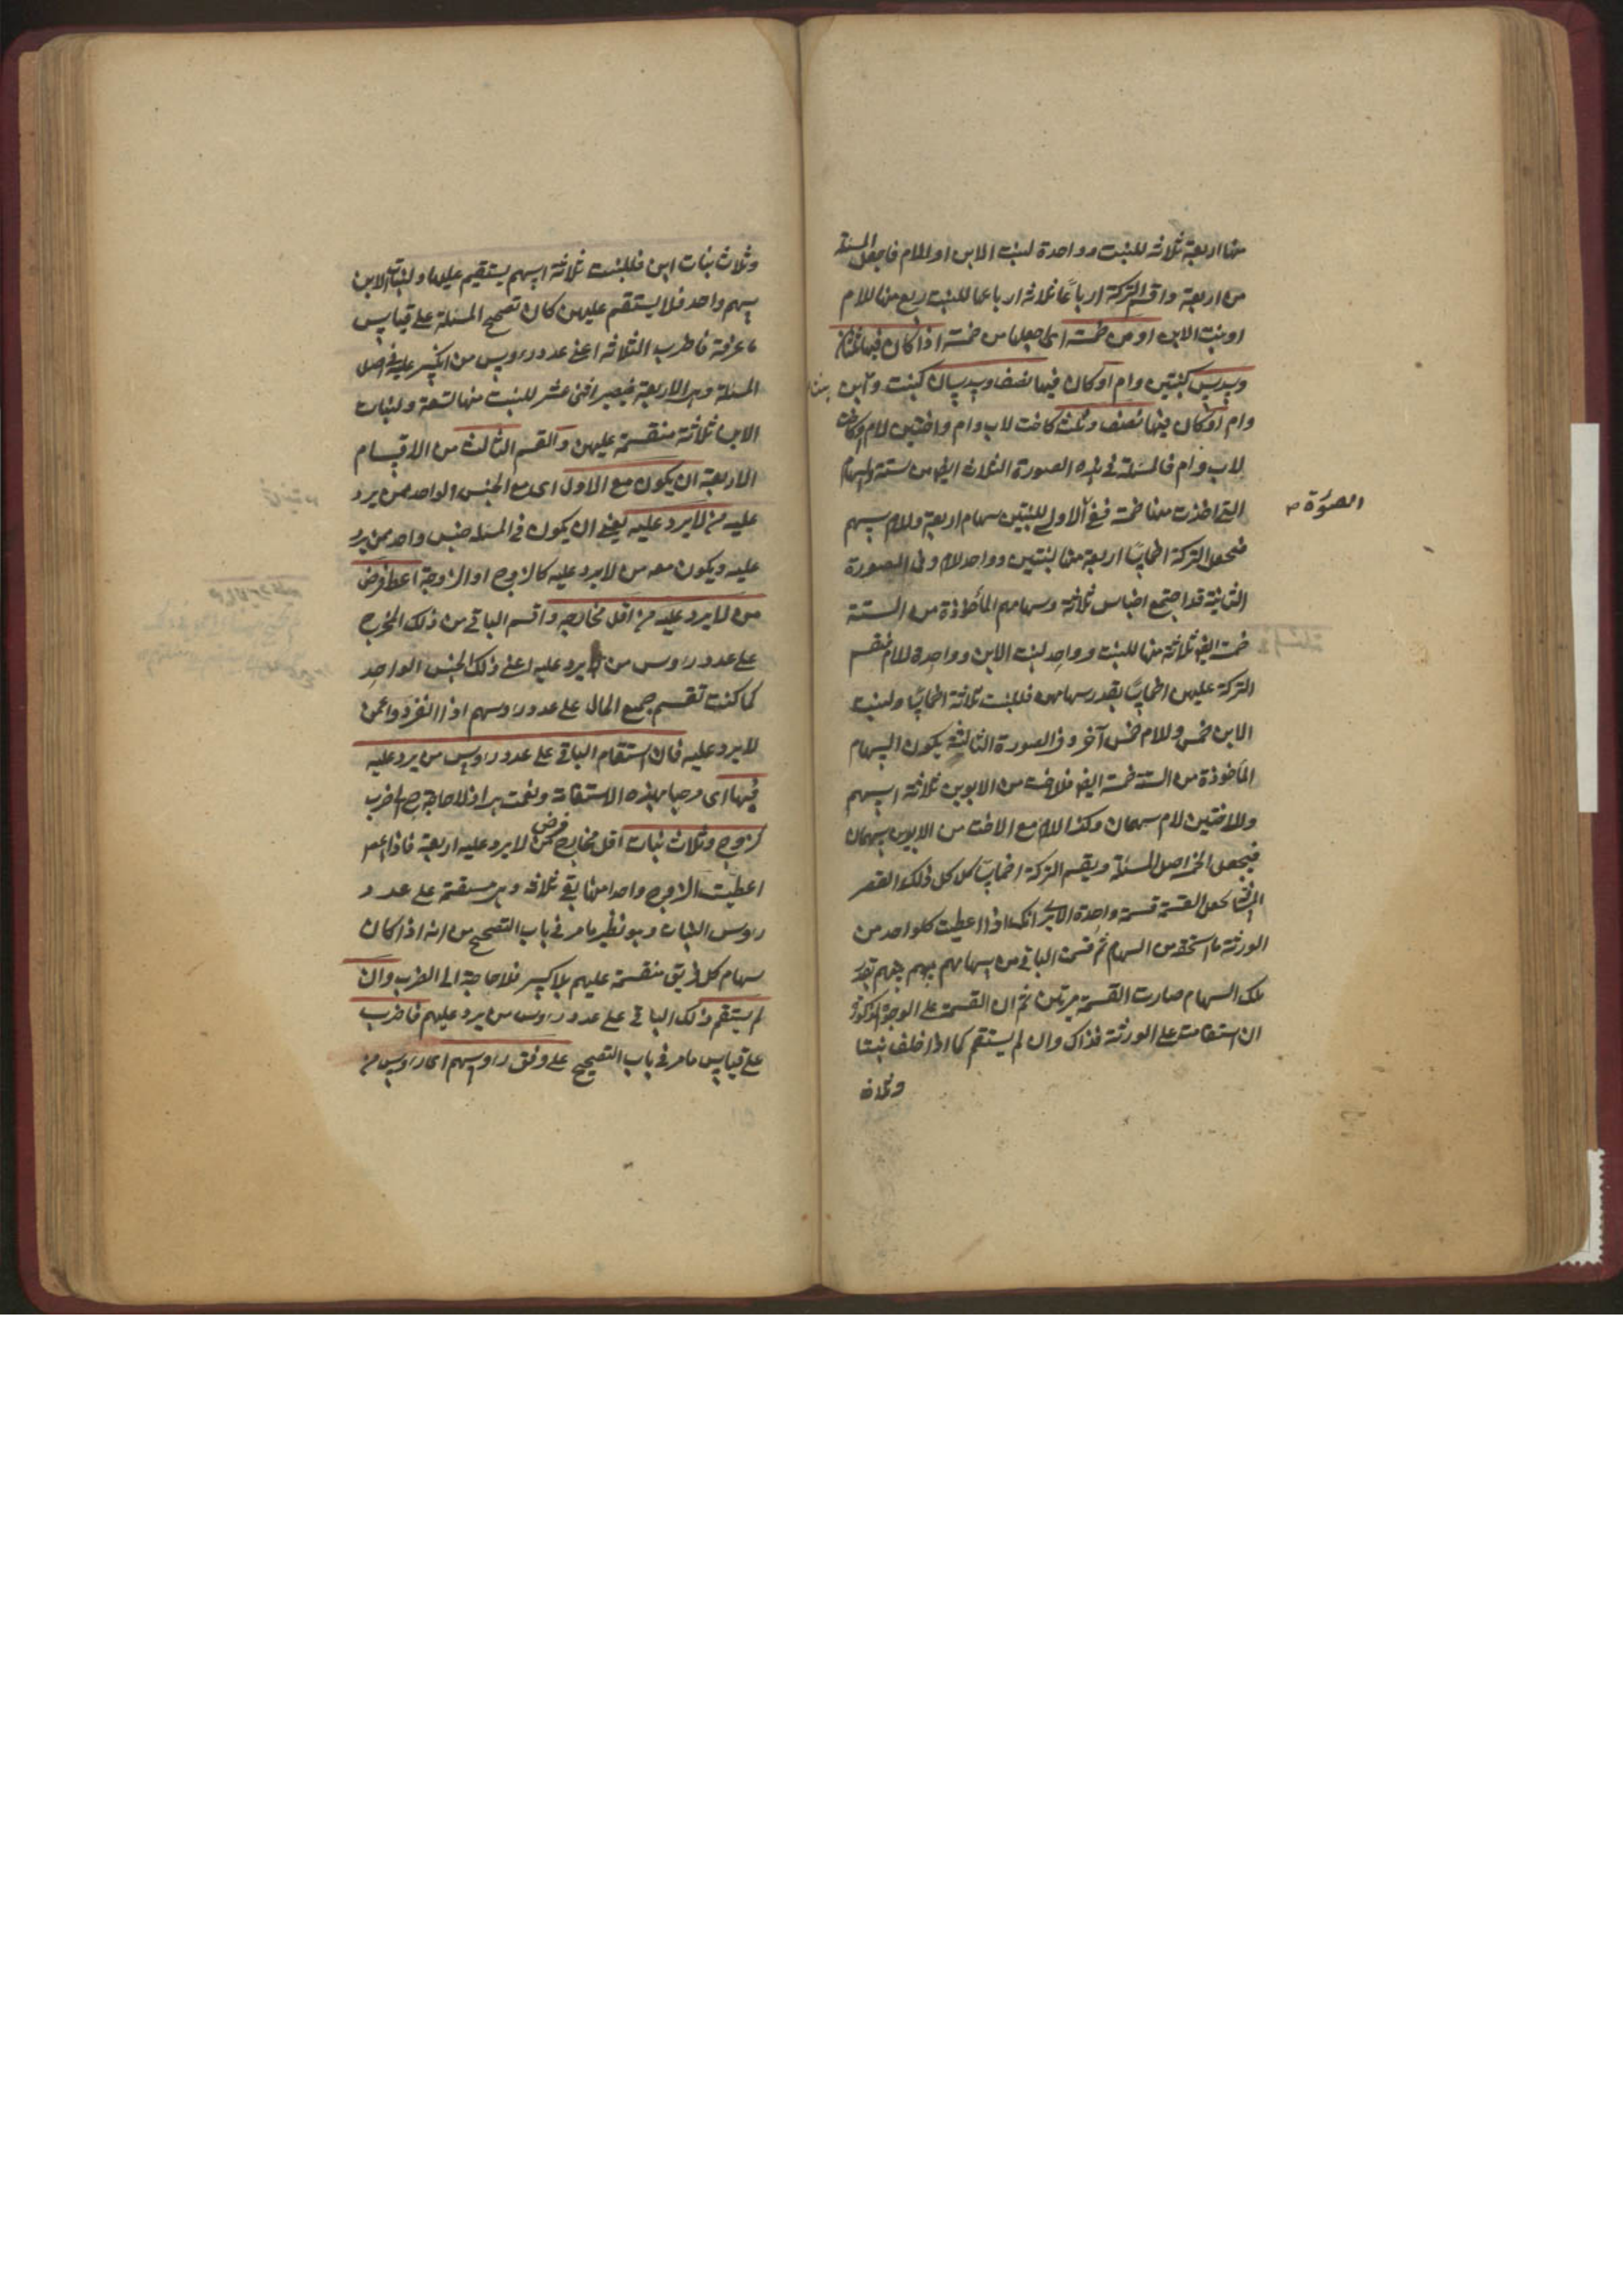 منها اربعة ثلاثة للبنت وواحدة لبنت الابن او للام فاجعل المسئلة
من اربعة واقسم التركة ارباعًا ثلاثة ارباعها للبنت ربع منها للام
او بنت الابن او من خمسة اى اجعلها من خمسة اذا كان فيها ثلثان
وسدس كبنتين وام او كان فيها نصف وسدسان كبنت وبنت ابن
وام او كان فيها نصف وثلث كاخت لاب وام واختين لام او كاخت
لاب وام فالمسئلة فى هذه الصورة الثلاث ايضا من ستة والسهام
التى اخذت منها خمسة ففى الاولى للبنتين سهام اربعة وللام سهم
الصورة
فتجعل التركة اخماسًا اربعة منها لبنتين وواحد للام وفى الصورة
الثانية قد اجتمع اجناس ثلاثة وسهامهم المأخوذة من الستة
خمسة ايضا ثلاثة منها للبنت وواحد لبنت الابن وواحدة للام فتقسم
التركة عليهن اخماسًا بقدر سهامهن فللبنت ثلاثة اخماس ولبنت
الابن خمس وللام خمس آخر وفى الصورة الثالثة يكون السهام
المأخوذة من الستة خمسة ايضا فلاخت من الابوين ثلاثة اسهم
وللاختين لام سهمان وكذا للام مع الاخت من الابوين سهمان
فيجعل الخمسة اصل المسئلة ويقسم التركة اخماسا كل ذلك لقصر
المسافة بجعل القسمة قسمة واحدة الا يرى انك اذا اعطيت كلواحد من
الورثة ما استحقه من السهام ثم قسمت الباقى من سهامهم بينهم بقدر
تلك السهام صارت القسمة مرتين ثم ان القسمة على الوجه المذكور
ان استقامت على الورثة فذاك وان لم يستقم كما اذا خلف بنتا
وثلاث
وثلاث بنات ابن فللبنت ثلاثة اسهم يستقيم عليها ولبنات الابن
سهم واحد فلا يستقيم عليهن كان تصحيح المسئلة على قياس
ما عرفته فاضرب الثلاثة اعنى عدد رؤس من انكسر عليه فى اصل
المسئلة وهى الاربعة فيصير اثنى عشر للبنت منها تسعة ولبنات
الابن ثلاثة منقسمة عليهن والقسم الثالث من الاقسام
الاربعة ان يكون مع الاول اى مع الجنس الواحد ممن يرد
عليه من لا يرد عليه يعنى ان يكون فى المسئلة جنس واحد ممن يرد
عليه ويكون معه من لا يرد عليه كالزوج او الزوجة اعط فرض
من لا يرد عليه من اقل مخارجه واقسم الباقى من ذلك المخرج
على عدد رؤس من يرد عليه اعنى ذلك الجنس الواحد
كما كنت تقسم جميع المال على عدد رؤسهم اذا انفردوا عمن
لا يرد عليه فان استقام الباقى على عدد رؤس من يرد عليه
فبها اى مرحبا بهذه الاستقامة ونعمت هى اذ لا حاجة ح الى ضرب
كزوج وثلاث بنات اقل مخارج فرض من لا يرد عليه اربعة فاذا
اعطيت الزوج واحدا منها بقى ثلاثة وهى مستقيمة على عدد
رؤس البنات وهو نظير ما مر فى باب التصحيح من انه اذا كان
سهام كل فريق منقسمة عليهم بلا كسر فلا حاجة الى الضرب وان
لم يستقم ذلك الباقى على عدد رؤس من يرد عليهم فاضرب
على قياس ما مر فى باب التصحيح على وفق رؤسهم اى رؤس من